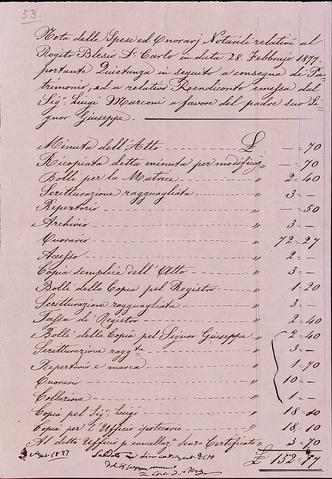 53.
Nota delle Spese ed Onorarj Notarili relativi al
Rogito Blesio Dr Carlo in data 28 Febbrajo 1877
portante Quietanza in seguito a consegna di Pa-
trimonio, ed a relativo Rendiconto emessa dal
Sigr Luigi Marconi a favore del padre suo Si-
gnor Giuseppe.
Minuta dell'Atto £ — 70
Ricopiata detta minuta per modifiche " — 70
Bolli per la Matrice " 2 - 40
Scritturazione ragguagliata " 3 —
Repertorio " — 50
Archivio " 3 —
Onorario " 72 - 27
Accesso " 2 —
Copia semplice dell'Atto " 3 —
Bolli della Copia pel Registro " 1 - 20
Scritturazione ragguagliata " 3 —
Tassa di Registro " 2 - 40
Bolli della Copia pel Signor Giuseppe " 2 - 40
Scritturazione raggta " 3 —
Repertorio e marca " 1 - 70
Onorario " 10 —
Collazione " 1 —
Copia pel Sigr Luigi " 18 - 10
Copia per l'Ufficio ipotecario " 18 - 10
Al detto Ufficio p cancellaz. Certificato " 3 - 70
£ 152 - 77
1877